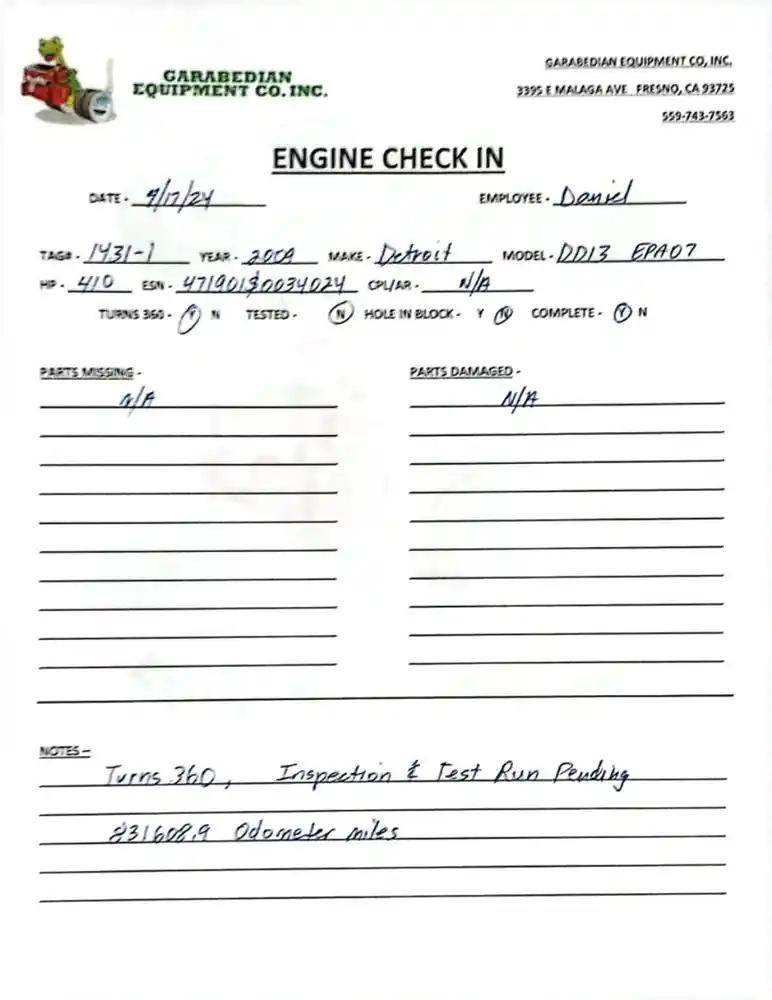 GARABEDIAN
EQUIPMENT CO. INC.
GARABEDIAN EQUIPMENT CO, INC.
3395 E MALAGA AVE FRESNO, CA 93725
559-743-7563
ENGINE CHECK IN
DATE - 9/17/24 EMPLOYEE - Daniel
TAG# - 1431-1 YEAR - 2009 MAKE - Detroit MODEL - DD13 EPA07
HP - 410 ESN - CPL/AR - N/A
TURNS 360 - Y N TESTED - N HOLE IN BLOCK - Y N COMPLETE - Y N
PARTS MISSING - PARTS DAMAGED -
N/A N/A
NOTES -
Turns 360, Inspection & Test Run Pending
831608.9 Odometer miles